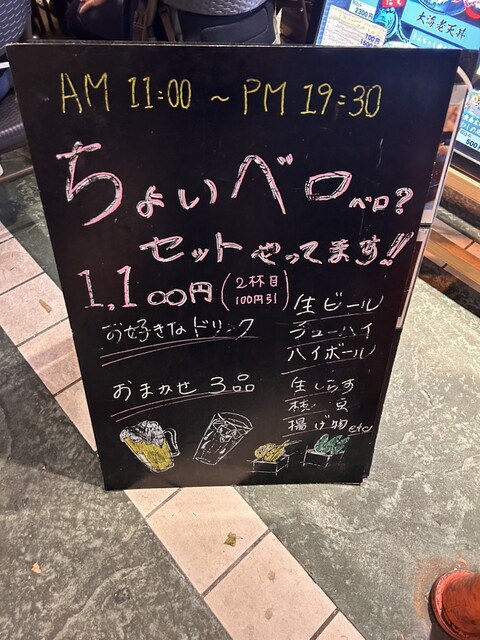 AM 11:00 ~ PM 19:30
ちょいベロベロ?
セットやってます!!
1,100円(2杯目100円引)
お好きなドリンク
生ビール
チューハイ
ハイボール
おまかせ 3品
生しらす
枝豆
揚げ物etc
大海老天丼